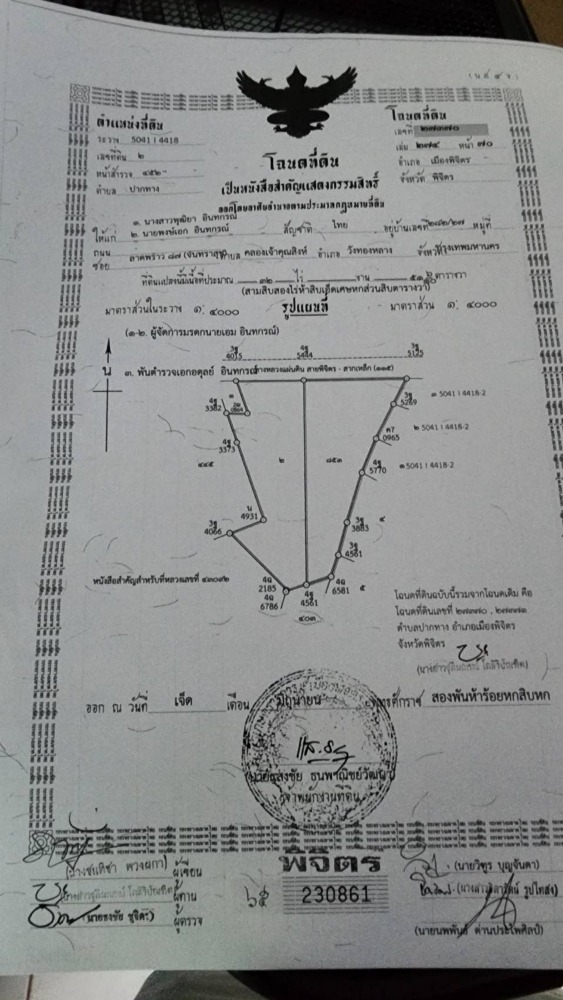 (น.ส. ๔ จ.)
ตำแหน่งที่ดิน
ระวาง 5041 I 4418
เลขที่ดิน ๒
หน้าสำรวจ ๔๕๒
ตำบล ปากทาง
โฉนดที่ดิน
เลขที่ ๒๗๓๗๐
เล่ม ๒๗๔ หน้า ๗๐
อำเภอ เมืองพิจิตร
จังหวัด พิจิตร
โฉนดที่ดิน
เป็นหนังสือสำคัญแสดงกรรมสิทธิ์
ออกโดยอาศัยอำนาจตามประมวลกฎหมายที่ดิน
๑. นางสาวพุฒิยา อินทกรณ์
ให้แก่ ๒. นายพงษ์เอก อินทกรณ์ สัญชาติ ไทย อยู่บ้านเลขที่ ๒๘๒/๒๗ หมู่ที่
ถนน
ซอย ลาดพร้าว ๘๗ (จันทราสุข) ตำบล คลองเจ้าคุณสิงห์ อำเภอ วังทองหลาง จังหวัด กรุงเทพมหานคร
ที่ดินแปลงนี้มีเนื้อที่ประมาณ ๓๒ ไร่ งาน ตารางวา
มาตราส่วนในระวาง ๑: ๔๐๐๐ รูปแผนที่ มาตราส่วน ๑: ๔๐๐๐
(๑-๒. ผู้จัดการมรดกนายเอม อินทกรณ์)
๓. พันตำรวจเอกอดุลย์ อินทกรณ์
ทางหลวงแผ่นดิน สายพิจิตร - สากเหล็ก (๑๑๕)
น
3ฐ
4015
4ฐ
5444
3ฐ
5125
4ฐ
3382
๑
3ฐ
5269
๑ 5041 I 4418-2
4ฐ
3373
ค7
0965
๒ 5041 I 4418-2
๔๔๕
๒
๘๕๓
4ฐ
5770
๓ 5041 I 4418-2
น
4931
3ฐ
4066
3ฐ
3883
๔
3ฐ
4581
หนังสือสำคัญสำหรับที่หลวงเลขที่ ๔๓๐๙๒
4ฉ
2185
4ฉ
6786
4ฐ
4561
4ฉ
6581
๕
๔๐๓
โฉนดที่ดินฉบับนี้รวมจากโฉนดเดิม คือ
โฉนดที่ดินเลขที่ ๒๗๓๗๐ , ๒๗๓๗๑
ตำบลปากทาง อำเภอเมืองพิจิตร
จังหวัดพิจิตร
ออก ณ วันที่ เจ็ด เดือน มิถุนายน พุทธศักราช สองพันห้าร้อยหกสิบหก
เจ้าพนักงานที่ดิน
ผู้เขียน
ผู้ทาน
ผู้ตรวจ
พิจิตร
230861
(นายวิฑูร บุญจันดา)